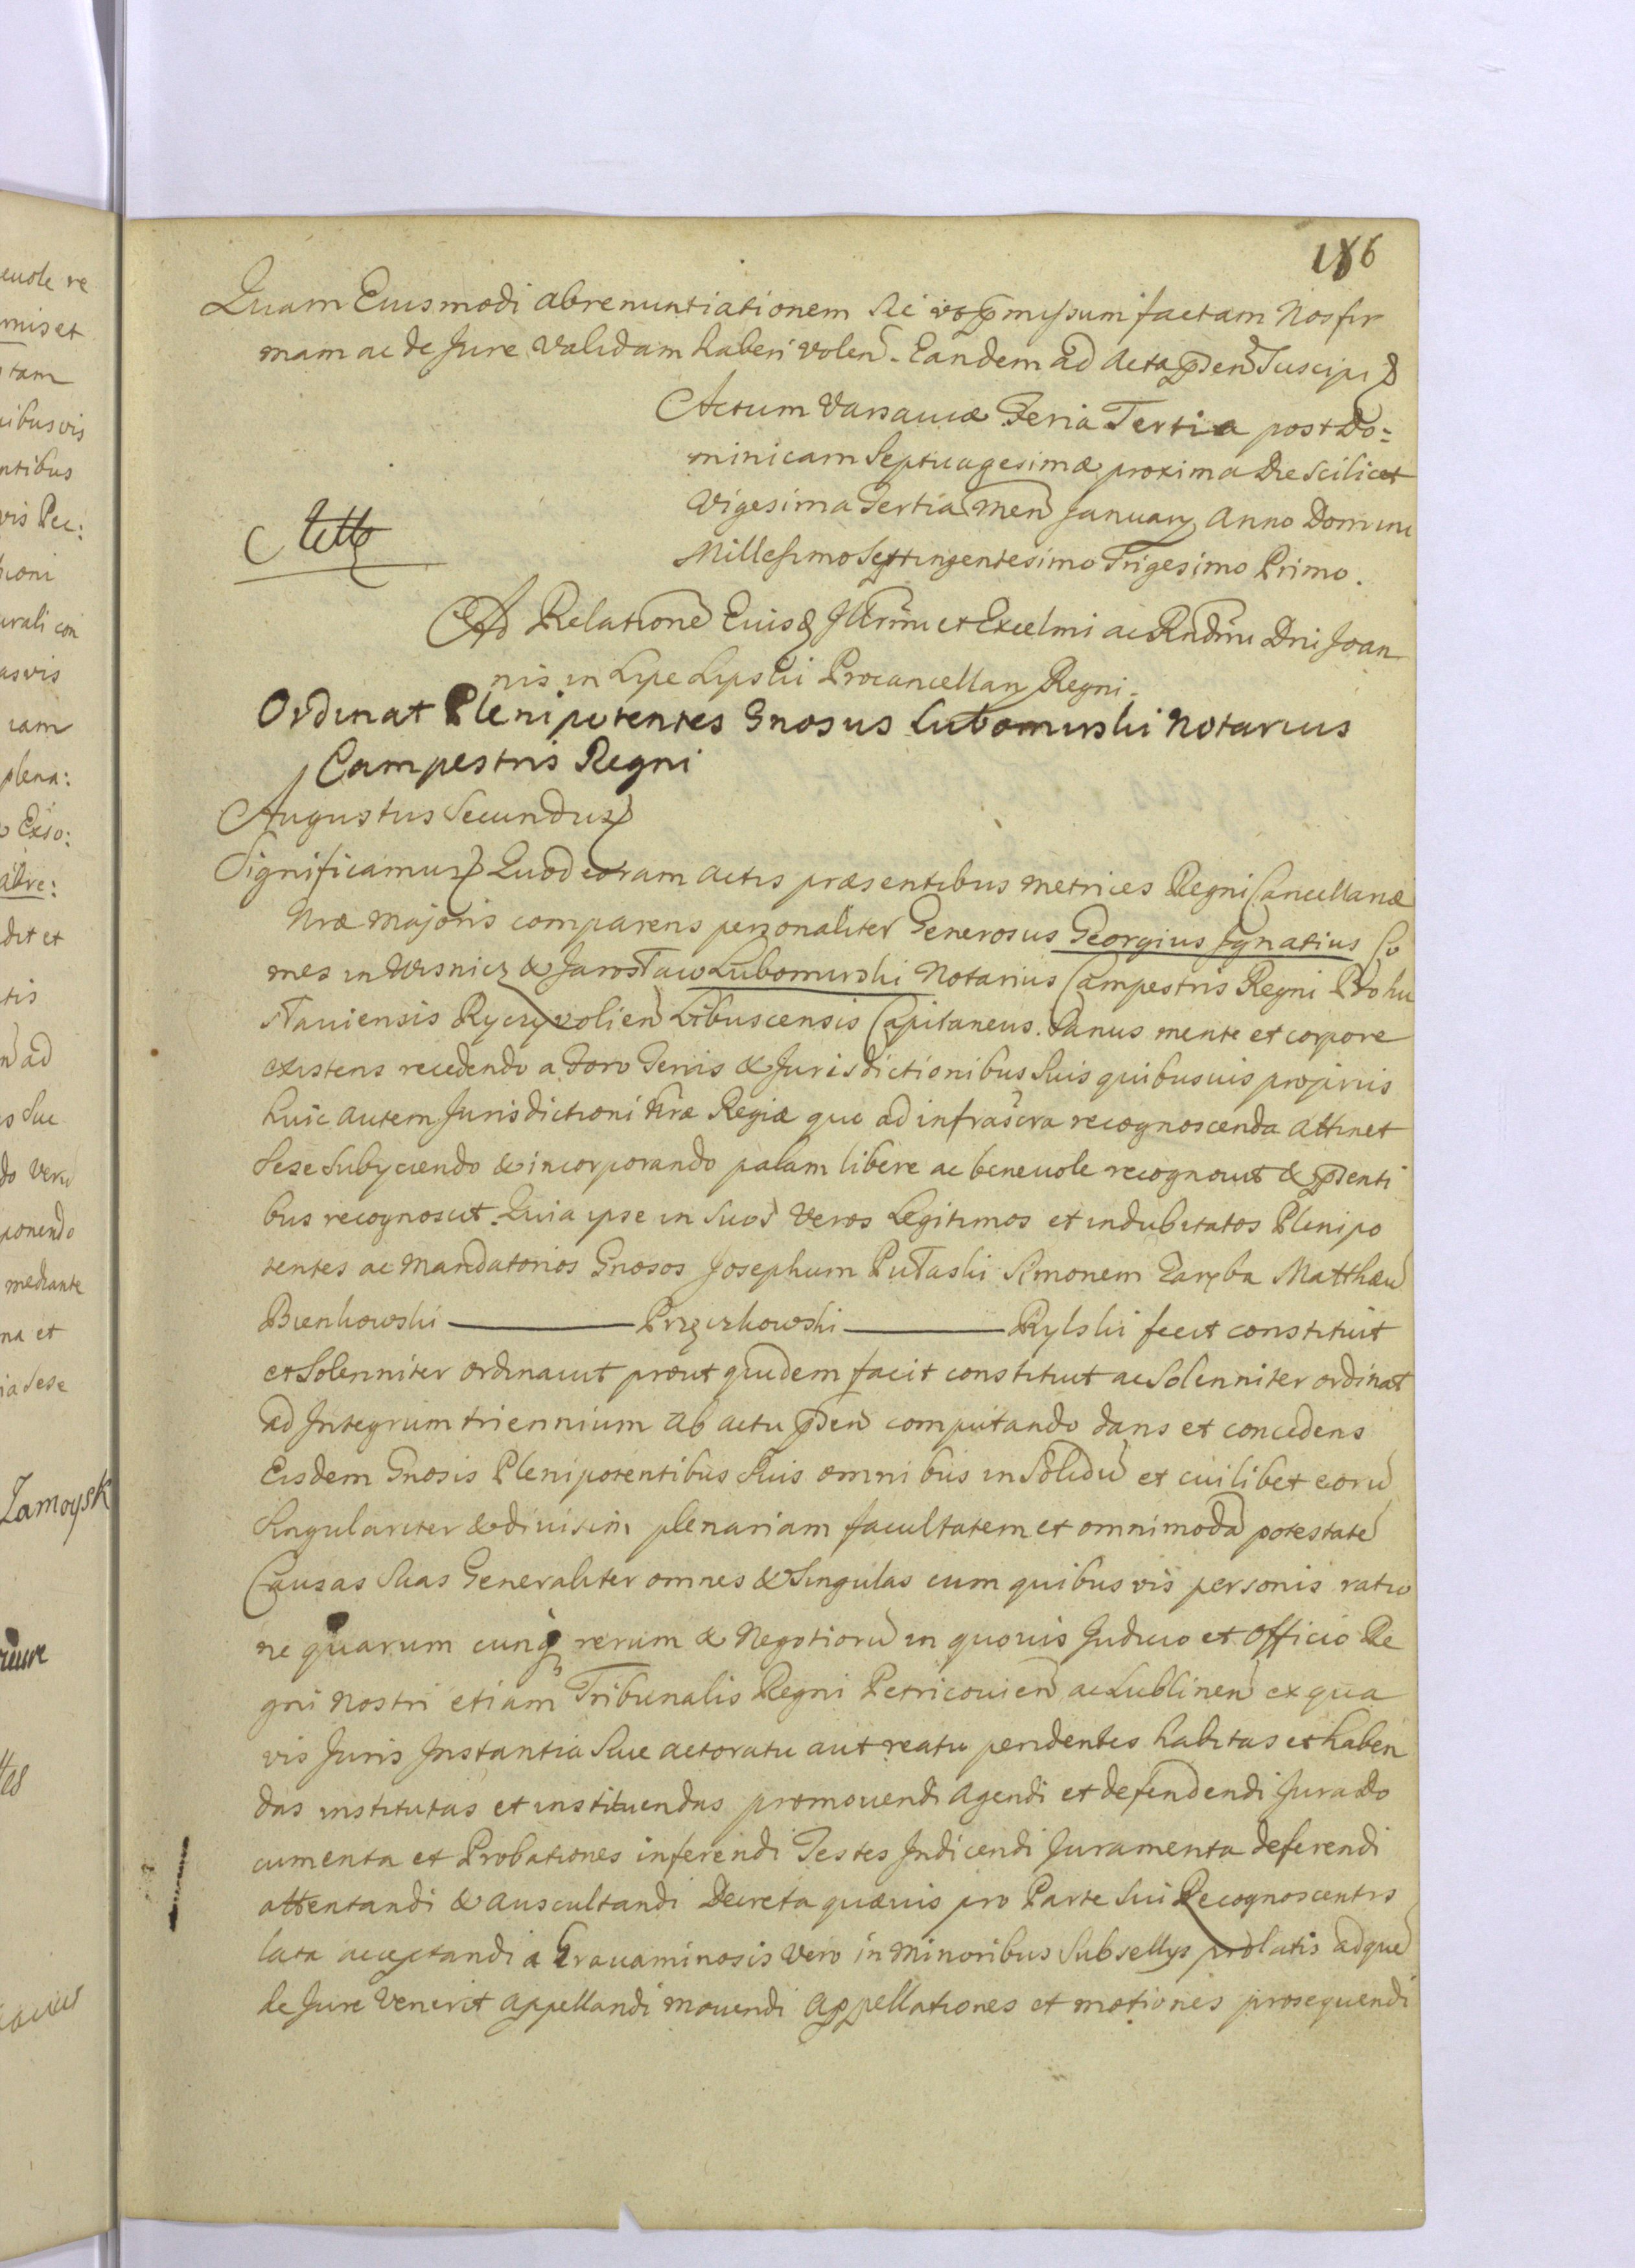 186
Quam Eiusmodi abrenuntiationem sic factam Nos fir
mam ac de Jure validam haberi volen. Eandem ad Acta psen suscipi
Actum Varsaviæ Feria Tertia post Do:
minicam Septuagesimæ proxima Die scilicet
Vigesima Tertia Men January Anno Domini
Millesimo Septingentesimo Trigesimo Primo.
Ad Relatione Eiusd Illrmi et Excelmi ac Rndmi Dni Joan
nis in Lipe Lipski Procancellary Regni.
Ordinat Plenipotentes Gnosus Lubomirski Notarius
Campestris Regni
Augustus Secundus
Significamus Quod coram actis præsentibus metrices Regni Cancellariæ
Nræ Majoris comparens personaliter Generosus Georgius Ignatius Co
mes in Wisnicz & Jarosław Lubomirski Notarius Campestris Regni Bohu
sławiensis Ryczyvolien Libuscensis Capitaneus. Sanus mente et corpore
existens recedendo a Foro Terris & Jurisdictionibus suis quibusuis proprys
huic autem Jurisdictioni Nræ Regiæ quo ad infrascra recognoscenda attinet
Sese Subyciendo & incorporando palam libere ac beneuole recognouit & psenti
bus recognoscit. Quia ipse in suos Veros Legitimos et indubitatos Plenipo
tentes ac Mandatorios Gnosos Josephum Pułaski Simonem Zaryba Matthæu
Bienkowski ——— Przęczkowski ——— Rylski fecit constituit
et Solenniter ordinauit prout quidem facit constituit ac Solenniter ordinat
ad Integrum triennium ab actu psen computando dans et concedens
Eisdem Gnosis Plenipotentibus suis omnibus in Solidu et cuilibet eoru
Singulariter & diuisim plenariam facultatem et omnimoda potestate
Causas Suas Generaliter omnes & Singulas cum quibus vis personis ratio
ne quarum cunq rerum & Negotioru in quouis Judicio et Officio Re
gni Nostri etiam Tribunalis Regni Petricouien ac Lublinen ex qua
vis Juris Instantia siue actoratu aut reatu pendentes habitas et haben
das institutas et instituendas promouendi agendi et defendendi Jura do
cumenta et Probationes inferendi Testes Indicendi Juramenta deferendi
attentandi & auscultandi Decreta quæuis pro Parte sui Recognoscentis
lata acceptandi a Grauaminosis vero in Minoribus Subsellys prolatis ad que
de Jure Venerit appellandi mouendi appellationes et motiones prosequendi